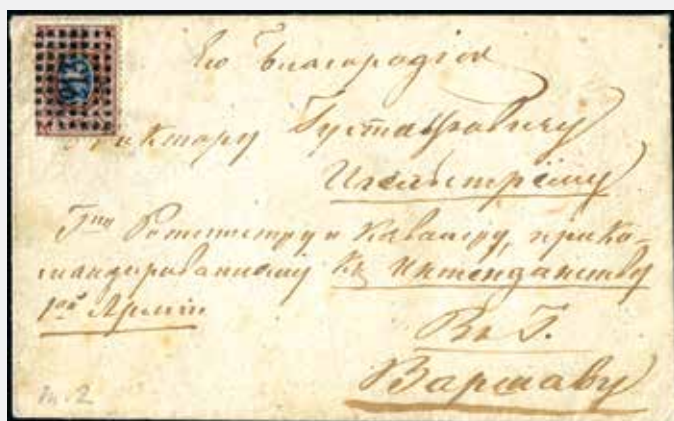 213
Его Благородію
Виктору Густафовичу
Игельстрёму
Гну Ротмистру и Кавалеру, прико-
мандированному Къ Интендантству
1ой Арміи
Въ Г.
Варшаву